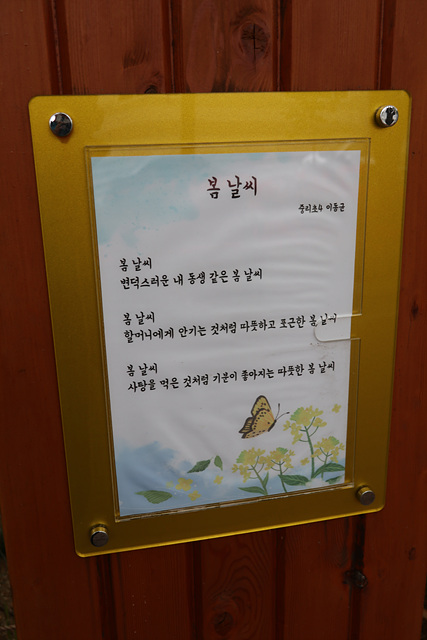 봄 날씨
중리초4 이동군
봄 날씨
변덕스러운 내 동생 같은 봄 날씨
봄 날씨
할머니에게 안기는 것처럼 따뜻하고 포근한 봄 날씨
봄 날씨
사탕을 먹은 것처럼 기분이 좋아지는 따뜻한 봄 날씨